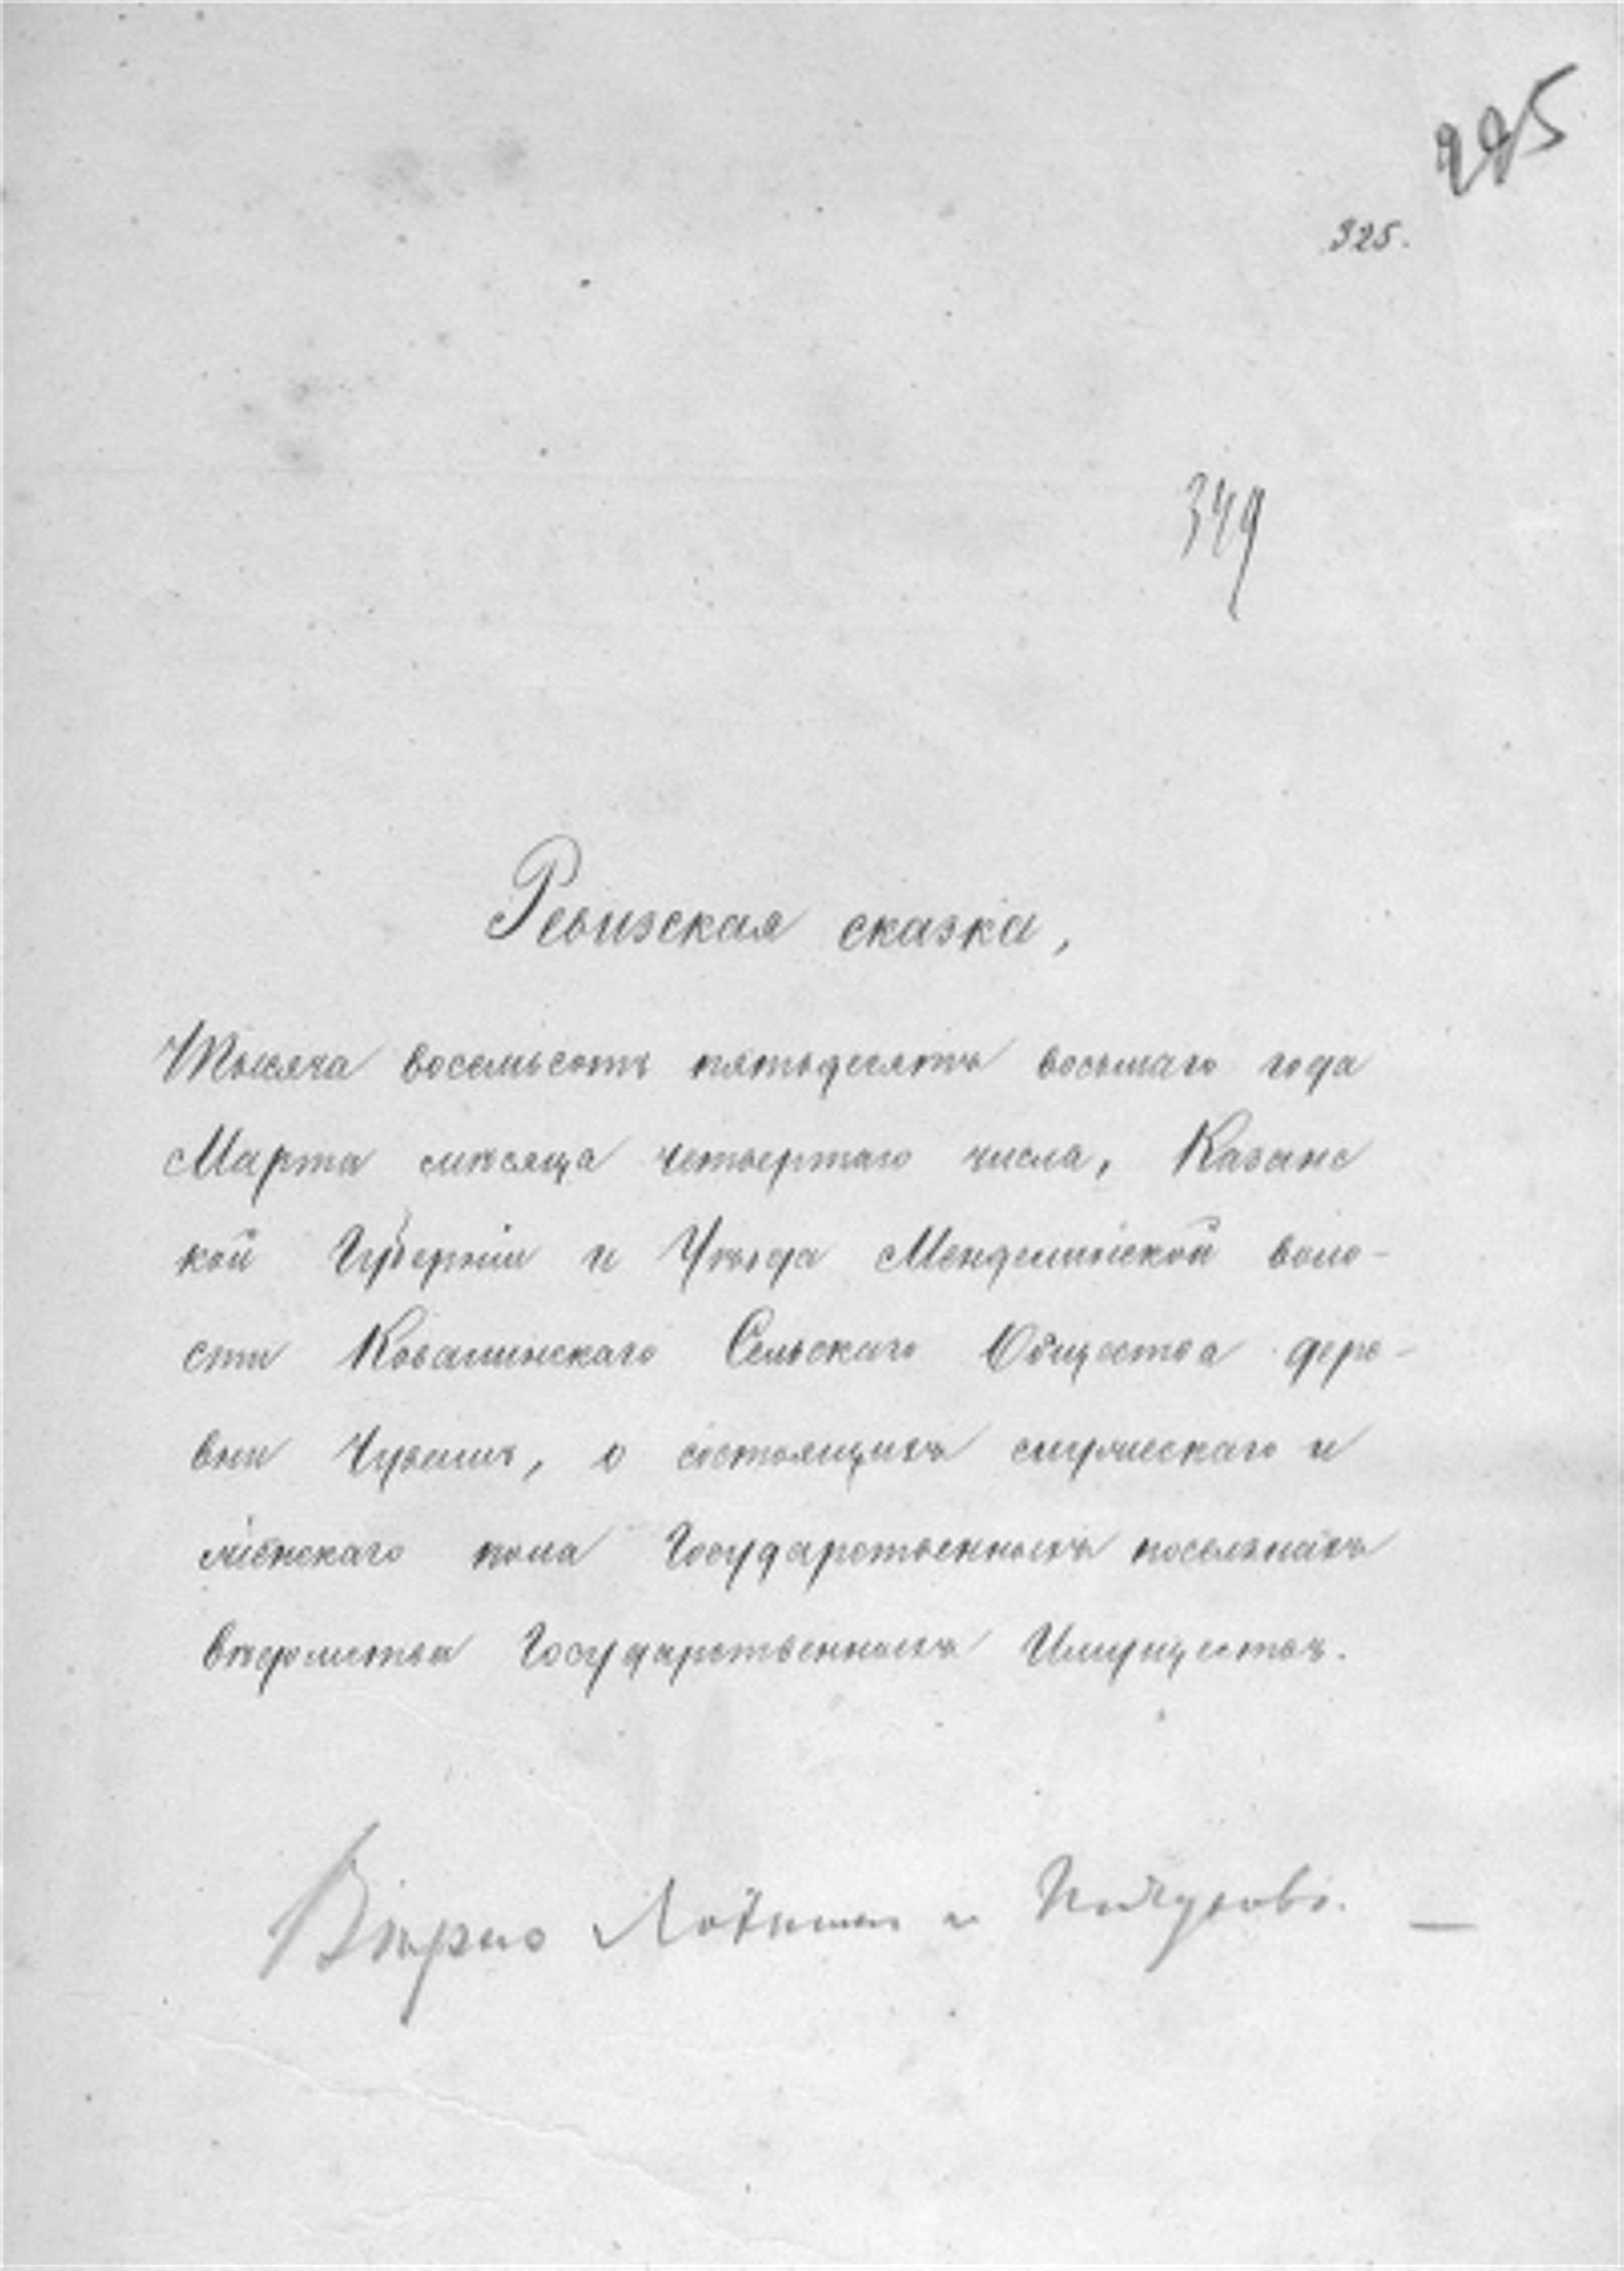 325.
349
Ревизская сказка,
Тысяча восемьсотъ пятьдесятъ восьмаго года
Марта мѣсяца четвертаго числа, Казанс
кой Губерніи и Уѣзда Менделинской воло-
сти Ковалинскаго Сельскаго Общества дере-
вни Чуваши, о состоящихъ мужескаго и
женскаго пола Государственныхъ поселянахъ
вѣдомства Государственныхъ Имуществъ.
Вѣрно и